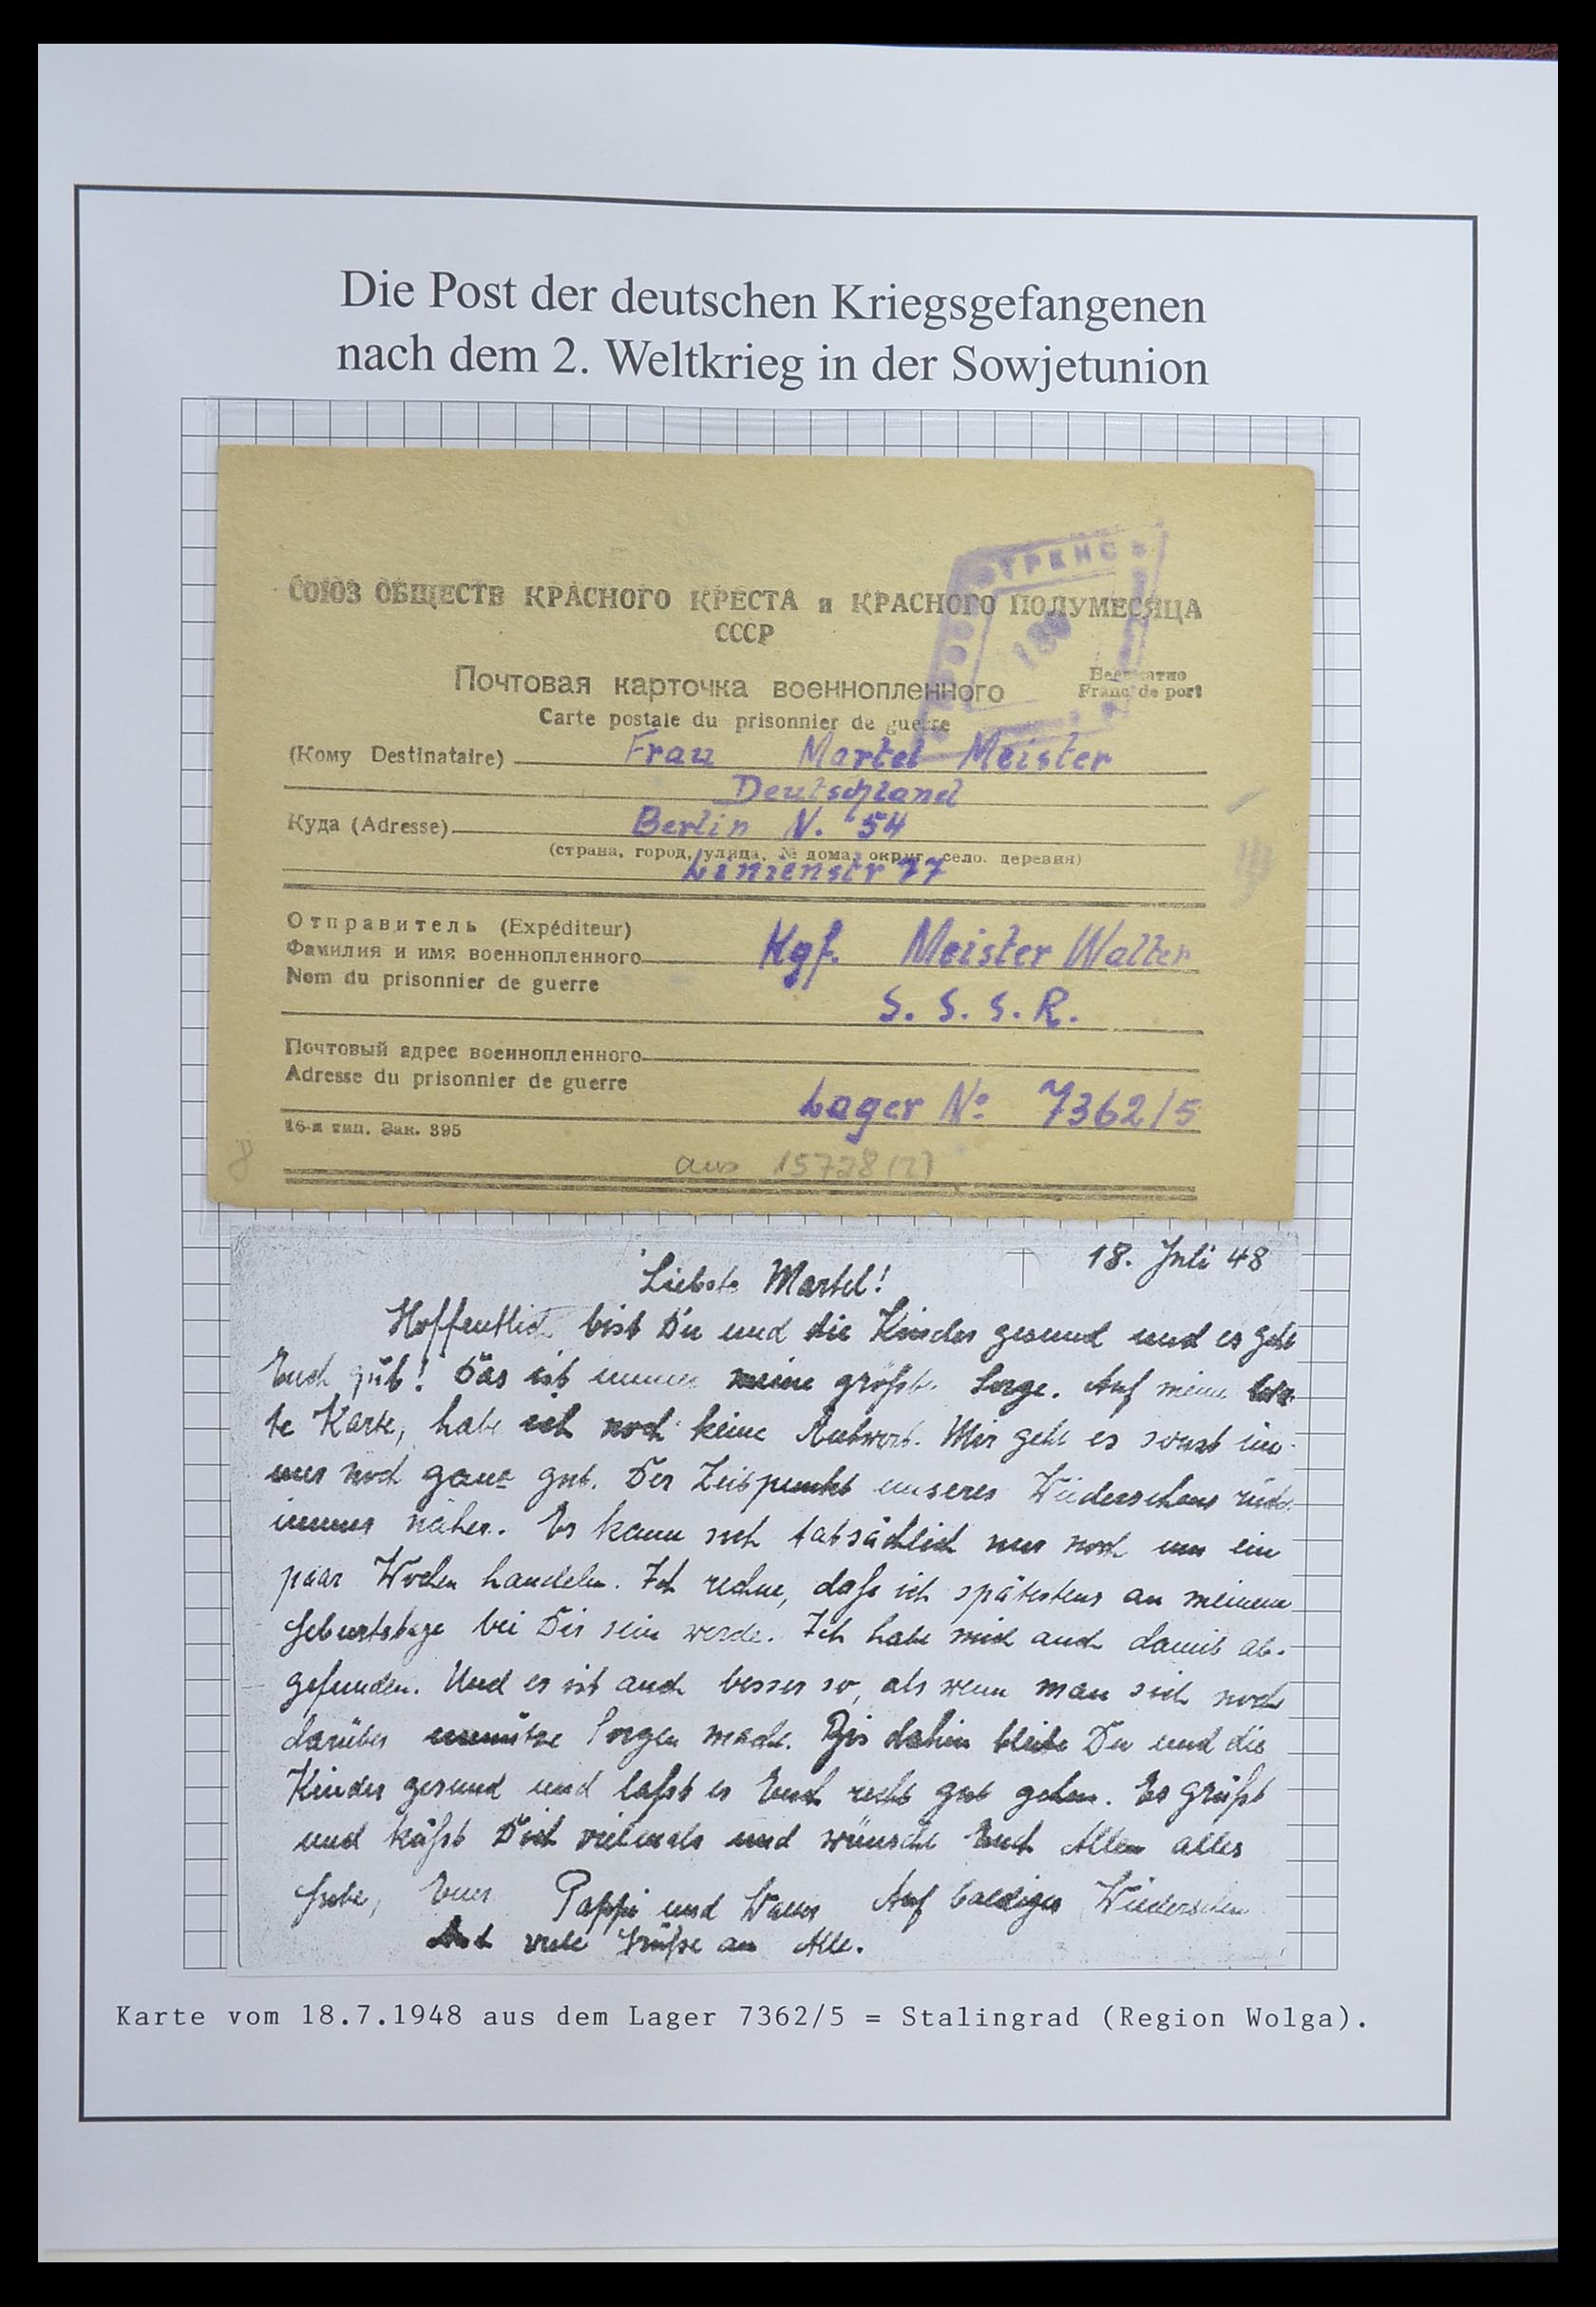 Die Post der deutschen Kriegsgefangenen
nach dem 2. Weltkrieg in der Sowjetunion
СОЮЗ ОБЩЕСТВ КРАСНОГО КРЕСТА и КРАСНОГО ПОЛУМЕСЯЦА
СССР
Почтовая карточка военнопленного
Бесплатно
Franc de port
Carte postale du prisonnier de guerre
(Кому Destinataire) Frau Martel Meister
Deutschland
Куда (Adresse) Berlin N. 54
(страна, город, улица, № дома, округ, село, деревня)
Linienstr 77
Отправитель (Expéditeur)
Фамилия и имя военнопленного Kgf. Meister Walter
Nom du prisonnier de guerre
S. S. S. R.
Почтовый адрес военнопленного
Adresse du prisonnier de guerre
Lager No 7362/5
16-я тип. Зак. 395
8
aus 15728 (2)
18. Juli 48
Liebste Martel!
Hoffentlich bist Du und die Kinder gesund und es geht
Euch gut! Das ist immer meine größte Sorge. Auf meine letz-
te Karte, habe ich noch keine Antwort. Mir geht es sonst im-
mer noch ganz gut. Der Zeitpunkt unseres Wiedersehens rückt
immer näher. Es kann sich tatsächlich nur noch um ein
paar Wochen handeln. Ich rechne, daß ich spätestens an meinem
Geburtstage bei Dir sein werde. Ich habe mich auch damit ab-
gefunden. Und es ist auch besser so, als wenn man sich noch
darüber unnütze Sorgen macht. Bis dahin bleibe Du und die
Kinder gesund und laßt es Euch recht gut gehen. Es grüßt
und küßt Dich vielmals und wünscht Euch Allen alles
Gute, Euer Pappi und Walter Auf baldiges Wiedersehen
viele Grüße an Alle.
Karte vom 18.7.1948 aus dem Lager 7362/5 = Stalingrad (Region Wolga).